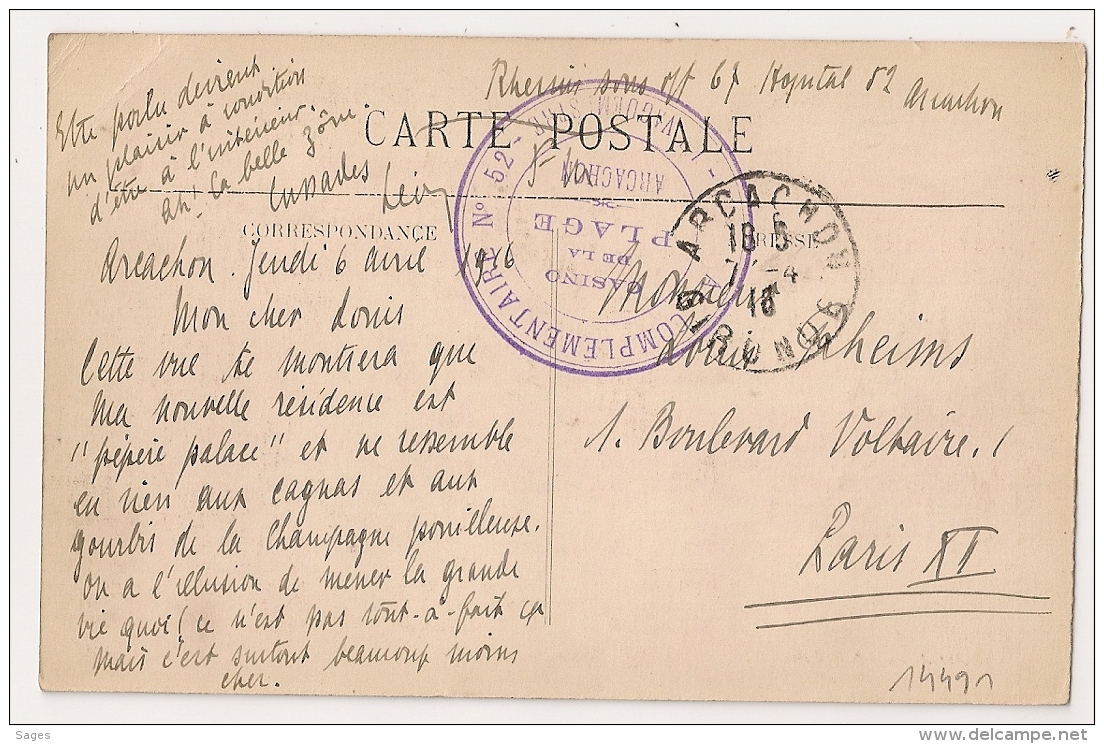 Rheims sous off 67 Hopital 52 Arcachon
CARTE POSTALE
CORRESPONDANCE
ADRESSE
Arcachon. Jeudi 6 avril 1916
Mon cher Louis
Cette vue te montrera que
ma nouvelle résidence est
"pépère palace" et ne ressemble
en rien aux cagnas et aux
gourbis de la Champagne pouilleuse.
on a l'illusion de mener la grande
vie quoi! ce n'est pas tout-à-fait ça
mais c'est surtout beaucoup moins
cher.
Etre poilu devient
un plaisir à condition
d'être à l'intérieur.
ah! la belle zône!
Léon
Monsieur
Louis Rheims
1. Boulevard Voltaire. 1
Paris XI
14491
COMPLÉMENTAIRE N° 52
CASINO
DE LA
PLAGE
ARCACHON
ARCACHON
18 5
GIRONDE
Sages
delcampe.net